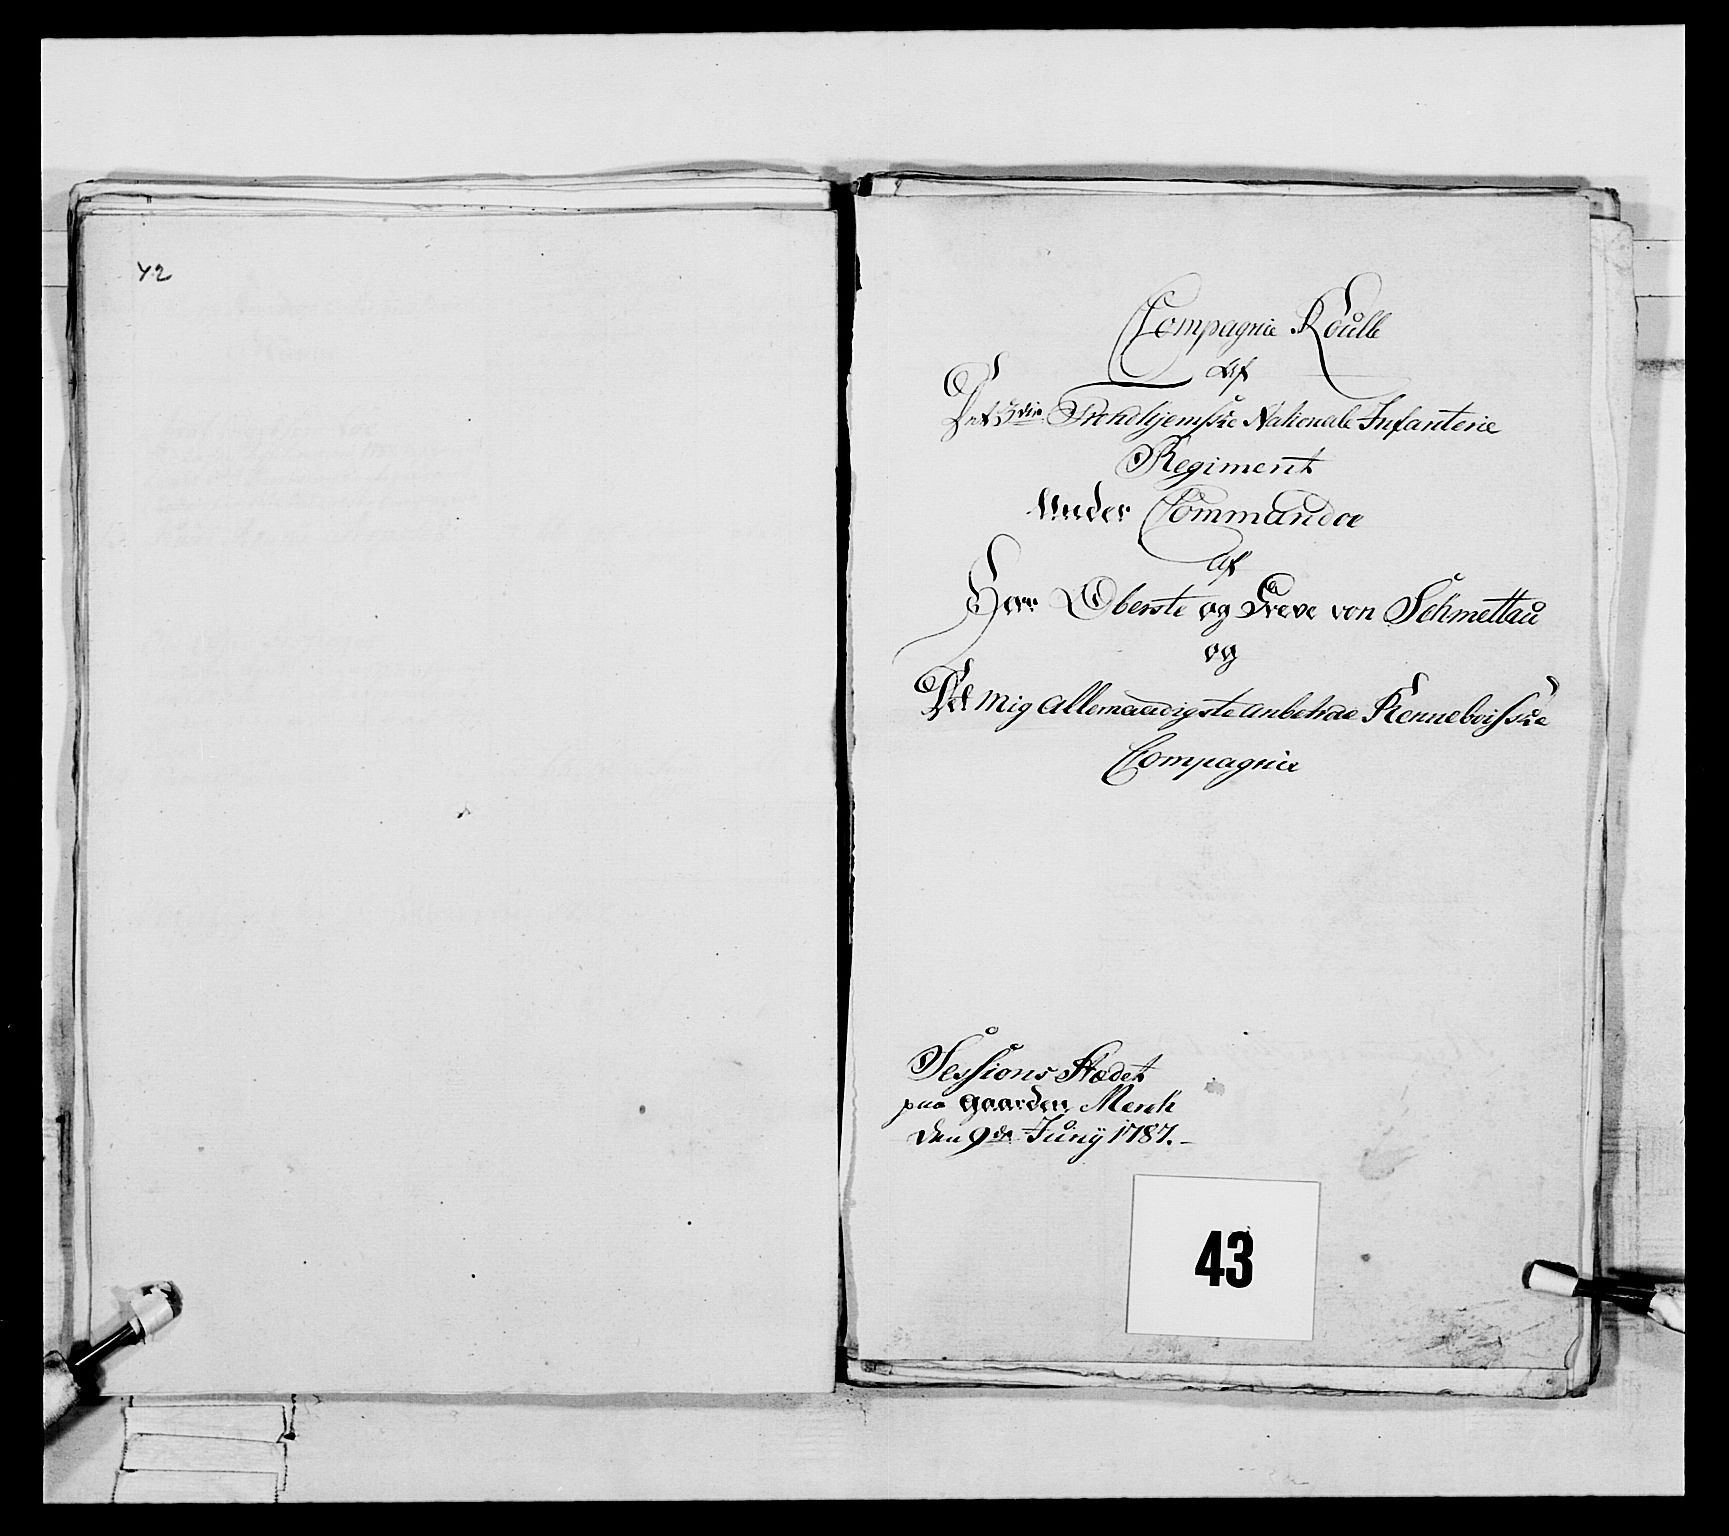 42
Compagnie Roulle
Af
Det 3die Trondhjemske Nationale Infanterie
Regiment
Under Commandoe
af
Herr Oberste og Greve von Schmettau
og
Det mig allernaadigste anbetroe Renneboiske
Compagnie
Sessions Stædet
paa gaarden Merck
den 9de Junÿ 1787.
43